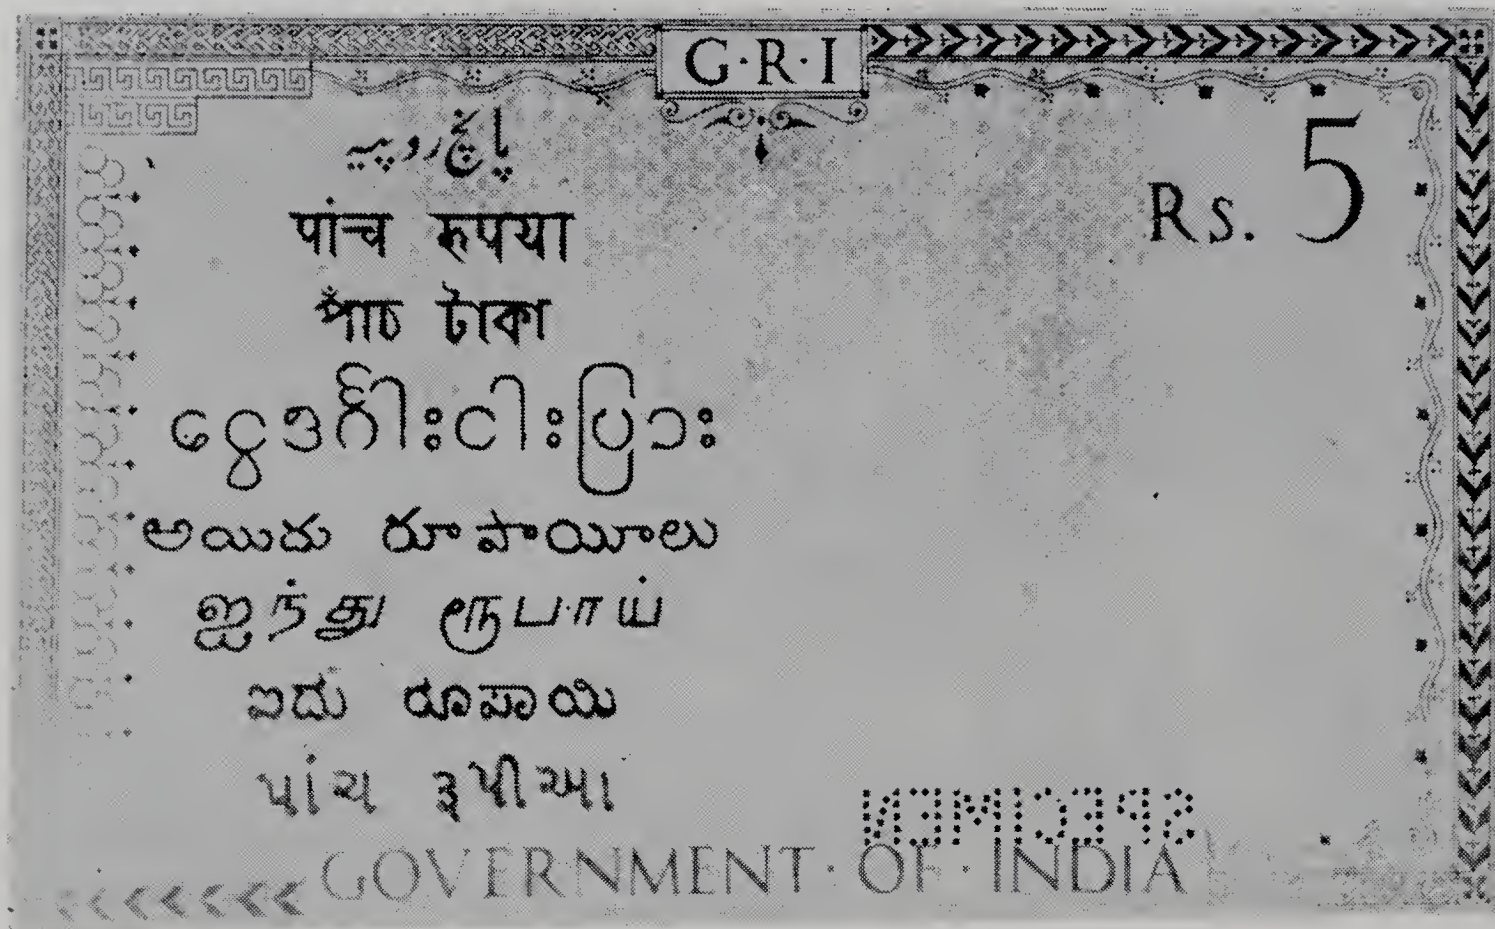 G·R·I
پانچ روپیہ
Rs. 5
पांच रुपया
পাঁচ টাকা
ငွေဒင်္ဂါးငါးပြားး
అయిదు రూపాయీలు
ஐந்து ரூபாய்
ಐದು ರೂಪಾಯಿ
પાંચ રૂપીઆ
SPECIMEN
GOVERNMENT · OF · INDIA